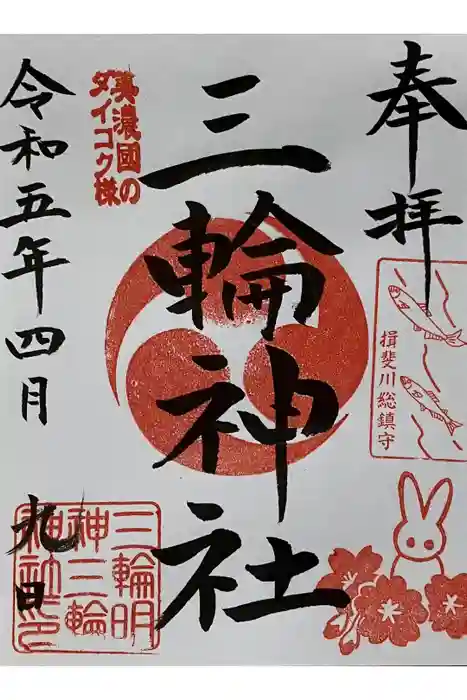 奉拝
揖斐川総鎮守
三輪神社
美濃國の
ダイコク様
令和五年四月
九日
三輪明
神三輪
神社印